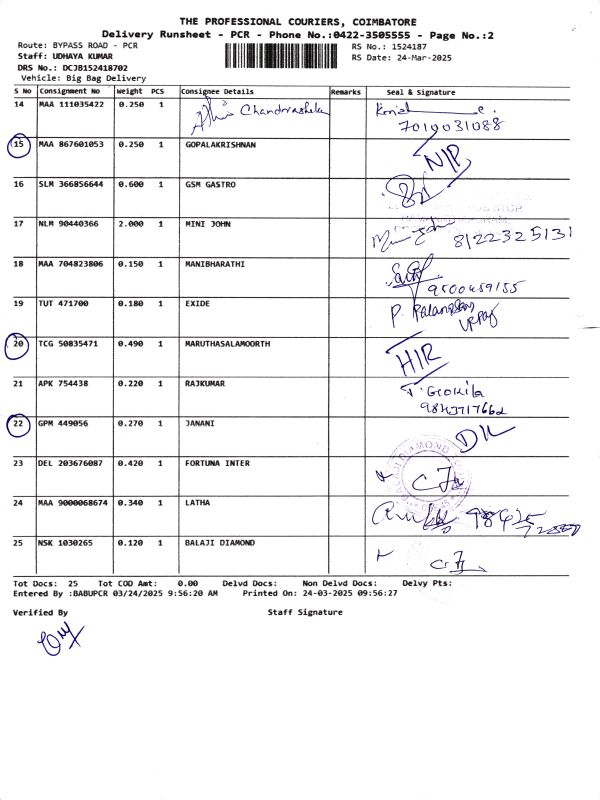 THE PROFESSIONAL COURIERS, COIMBATORE
Delivery Runsheet - PCR - Phone No.:0422-3505555 - Page No.:2
Route: BYPASS ROAD - PCR
RS No.: 1524187
Staff: UDHAYA KUMAR
RS Date: 24-Mar-2025
DRS No.: DCJB152418702
Vehicle: Big Bag Delivery
S No Consignment No Weight PCS Consignee Details Remarks Seal & Signature
14 MAA 111035422 0.250 1 Chandrashekar
7010031088
15 MAA 867601053 0.250 1 GOPALAKRISHNAN N/P
16 SLM 366856644 0.600 1 GSM GASTRO
17 NLM 90440366 2.000 1 MINI JOHN 8122325131
18 MAA 704823806 0.150 1 MANIBHARATHI
9500459155
19 TUT 471700 0.180 1 EXIDE P.
20 TCG 50835471 0.490 1 MARUTHASALAMOORTH HIR
21 APK 754438 0.220 1 RAJKUMAR T. Gokila
9843717662
22 GPM 449056 0.270 1 JANANI DIL
23 DEL 203676087 0.420 1 FORTUNA INTER
24 MAA 9000068674 0.340 1 LATHA 98425
25 NSK 1030265 0.120 1 BALAJI DIAMOND
Tot Docs: 25 Tot COD Amt: 0.00 Delvd Docs: Non Delvd Docs: Delvy Pts:
Entered By :BABUPCR 03/24/2025 9:56:20 AM Printed On: 24-03-2025 09:56:27
Verified By Staff Signature